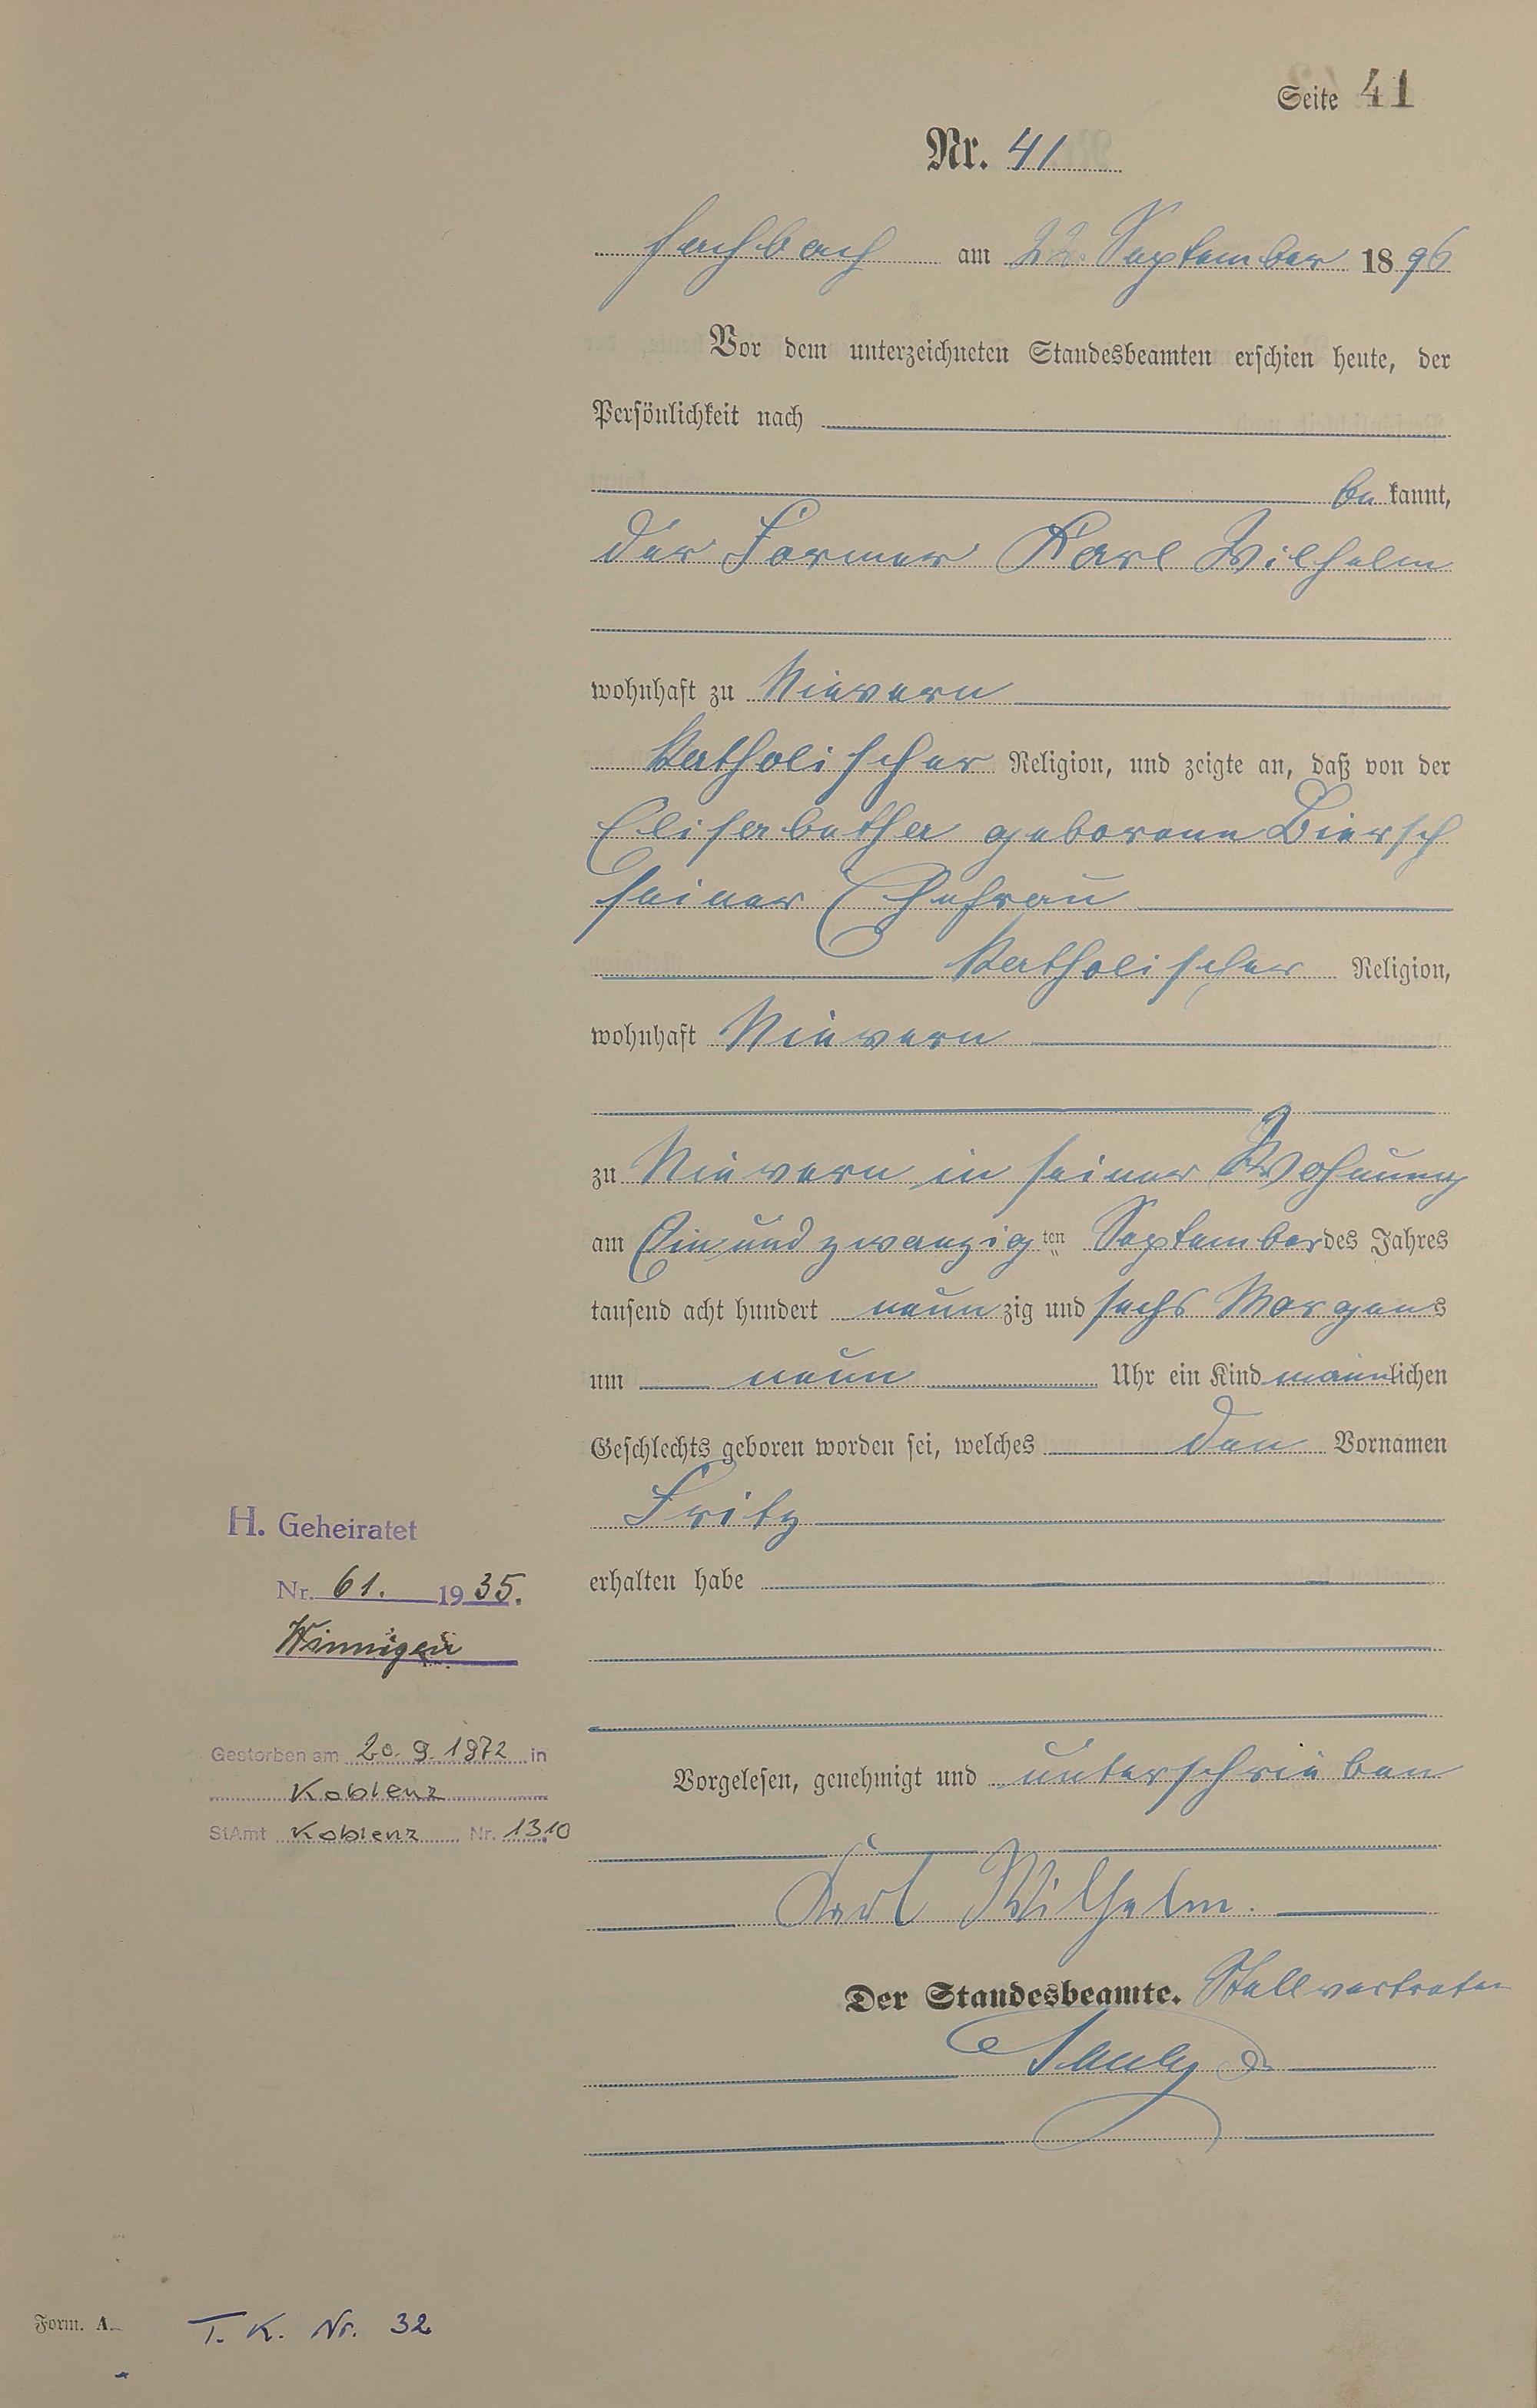 Seite 41
Nr. 41
Fachbach am 22. September 1896
Vor dem unterzeichneten Standesbeamten erschien heute, der
Persönlichkeit nach
be kannt,
der Former Karl Wilhelm
wohnhaft zu Nievern
katholischer Religion, und zeigte an, daß von der
Elisabetha geborene Biersch
seiner Ehefrau
katholischer Religion,
wohnhaft Nievern
zu Nievern in seiner Wohnung
am Ein und zwanzig ten September des Jahres
tausend acht hundert neun zig und sechs Morgens
um neun Uhr ein Kind männlichen
Geschlechts geboren worden sei, welches den Vornamen
Fritz
erhalten habe
H. Geheiratet
Nr. 61. 1935.
Winnigen
Gestorben am 20.9.1972 in
Koblenz
StAmt Koblenz Nr. 1310
Vorgelesen, genehmigt und unterschrieben
Karl Wilhelm.
Der Standesbeamte. Stellvertreter
Form. A. T. K. Nr. 32